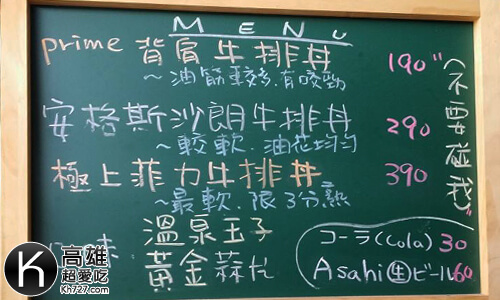 MENU
prime 背肩牛排丼 190
~油筋較多.有咬勁
安格斯沙朗牛排丼 290
~較軟.油花均勻
極上菲力牛排丼 390
~最軟.限3分熟
溫泉玉子
黃金蒜片
コーラ(Cola) 30
Asahi生ビール60
"(不要碰我)"
K 高雄
超愛吃
Kh727.com